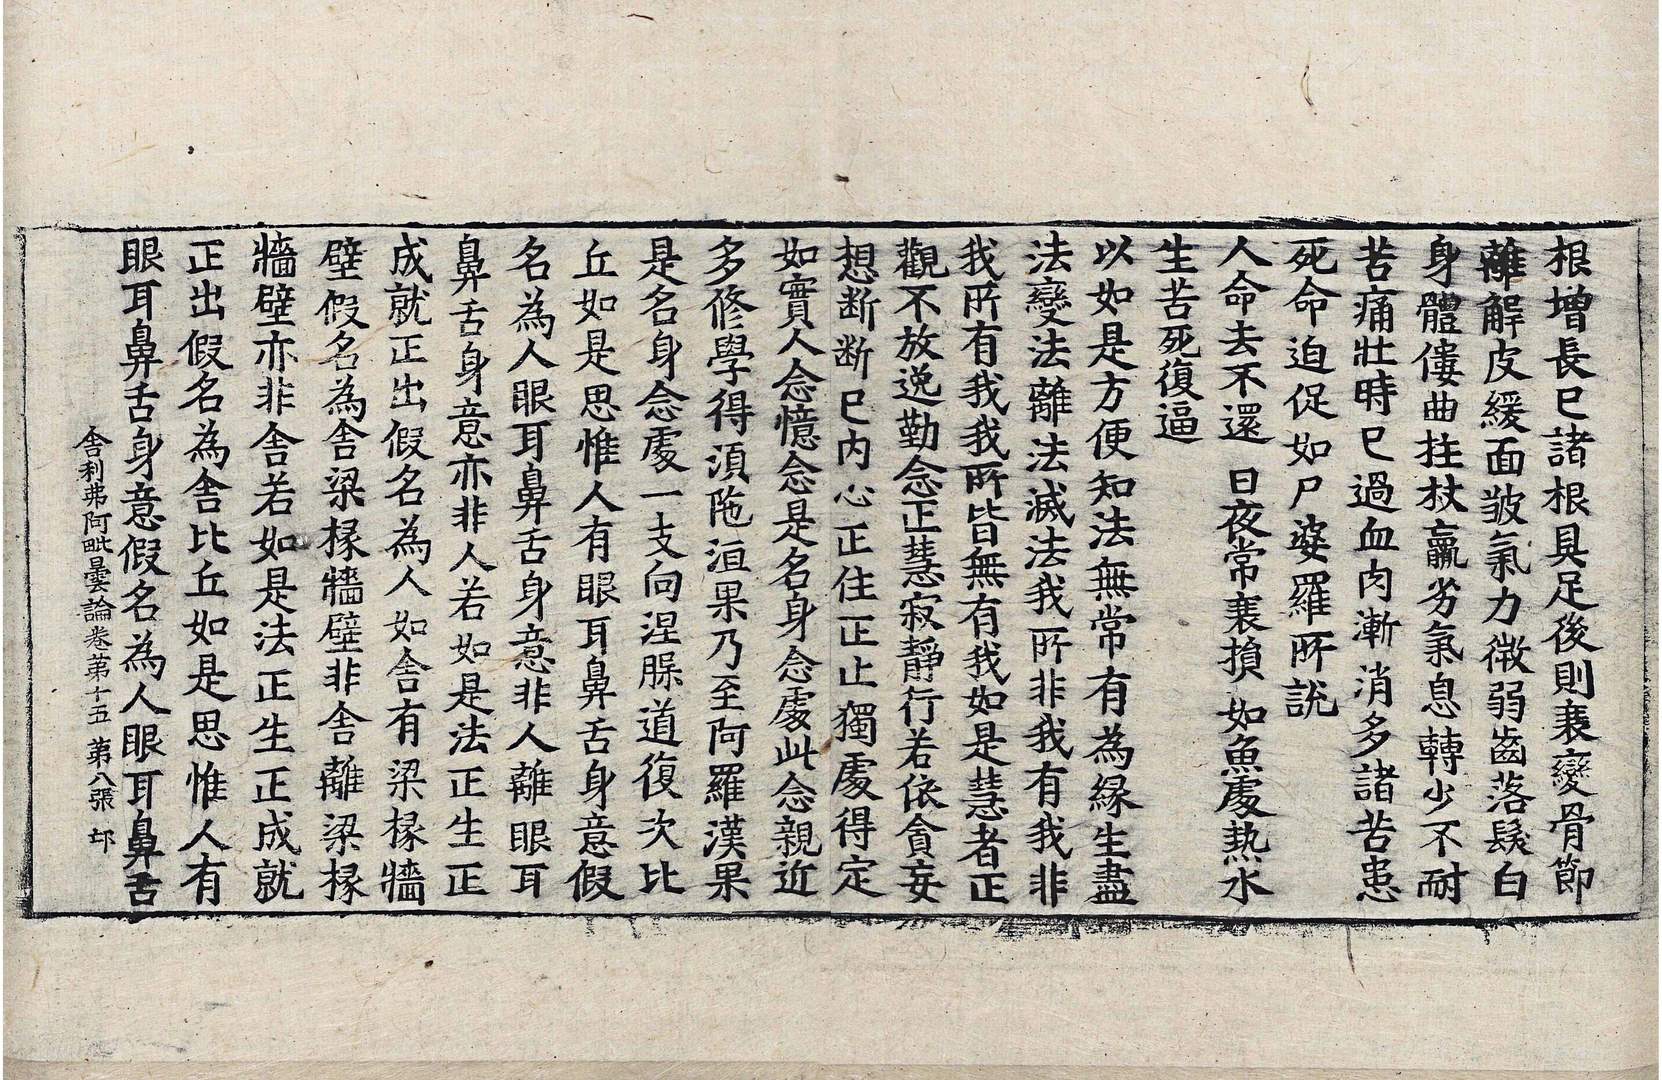 根增長已諸根具足後則衰變骨節
離解皮緩面皺氣力微弱齒落髮白
身體僂曲拄杖羸劣氣息轉少不耐
苦痛壯時已過血肉漸消多諸苦患
死命迫促如尸婆羅所說
人命去不還　日夜常衰損　如魚處熱水
生苦死復逼
以如是方便知法無常有為緣生盡
法變法離法滅法我所非我有我非
我所有我我所皆無有我如是慧者正
觀不放逸勤念正慧寂靜行若依貪妄
想断断已內心正住正止獨處得定
如實人念憶念是名身念處此念親近
多修學得須陁洹果乃至阿羅漢果
是名身念處一支向涅縣道復次比
丘如是思惟人有眼耳鼻舌身意假
名為人眼耳鼻舌身意非人離眼耳
鼻舌身意亦非人若如是法正生正
成就正出假名為人如舍有梁椽牆
壁假名為舍梁椽牆壁非舍離梁椽
牆壁亦非舍若如是法正生正成就
正出假名為舍比丘如是思惟人有
眼耳鼻舌身意假名為人眼耳鼻舌
舍利弗阿毗曇論卷第十五　第八張